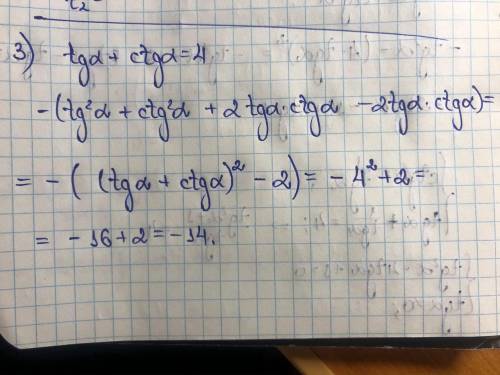 3) tgα + ctgα = 4
-(tg²α + ctg²α + 2tgα·ctgα - 2tgα·ctgα) =
= -((tgα + ctgα)² - 2) = -4² + 2 =
= -16 + 2 = -14.